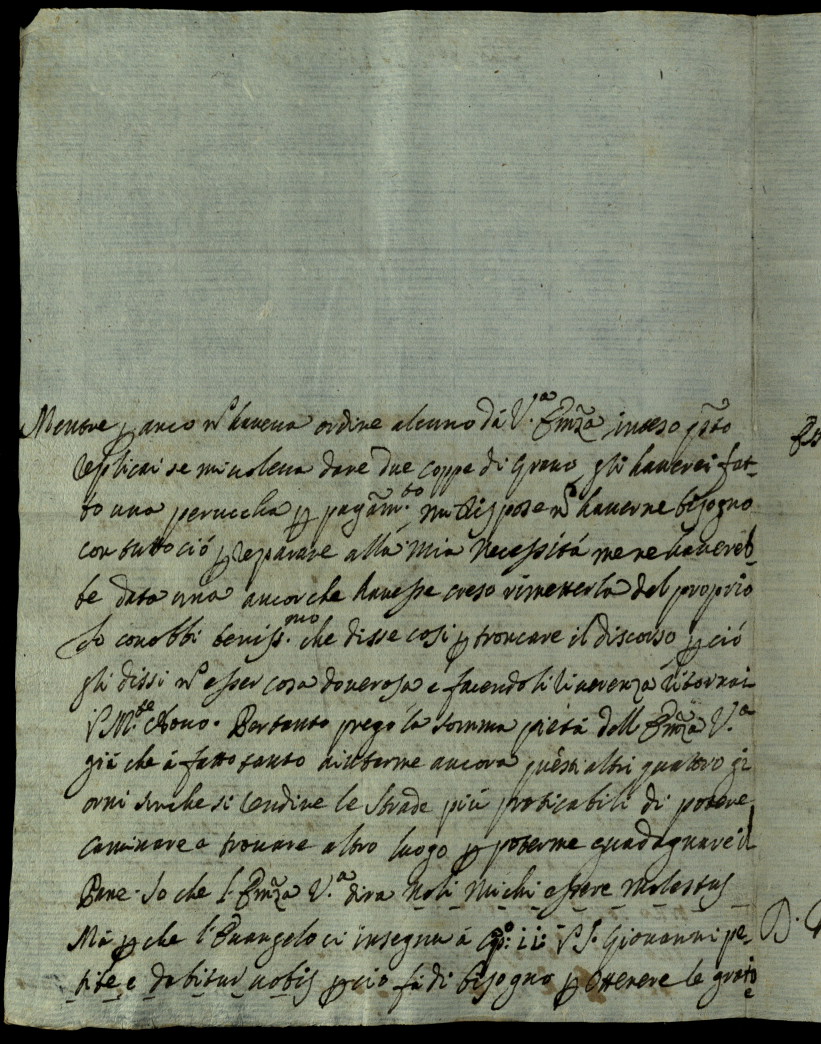 Mentre p anco nō haveva ordine alcuno dà V.ª Emza inteso qsto
replicai se mi voleva dare due coppe di Grano gli haverei fat-
to una perucha p pagam.to mi rispose nō haverne bisogno
con tutto ciò p reparare alla mia necessità me ne havereb-
be data una ancorche havesse creso rimetterla del proprio
Io conobbi beniss.mo che disse cosi p troncare il discorso p ciò
gli dissi nō esser cosa doverosa e facendoli riverenza ritornai
Pertanto prego la somma pietà dell Emza V.ª
già che à fatto tanto aiutarme ancora questi altri quattro gi
orni sinche si rendine le strade più praticabili di potere
caminare a trovare altro luogo p poterme guadagnare il
Pane. So che l'Emza V.ª dira noli michi essere molestus
Mà p che l'Evangelo ci insegna à Cpº: ii: S. Giovanni pe-
tite, e dabitur vobis p cio fà di bisogno p ottenere le gratie
D.